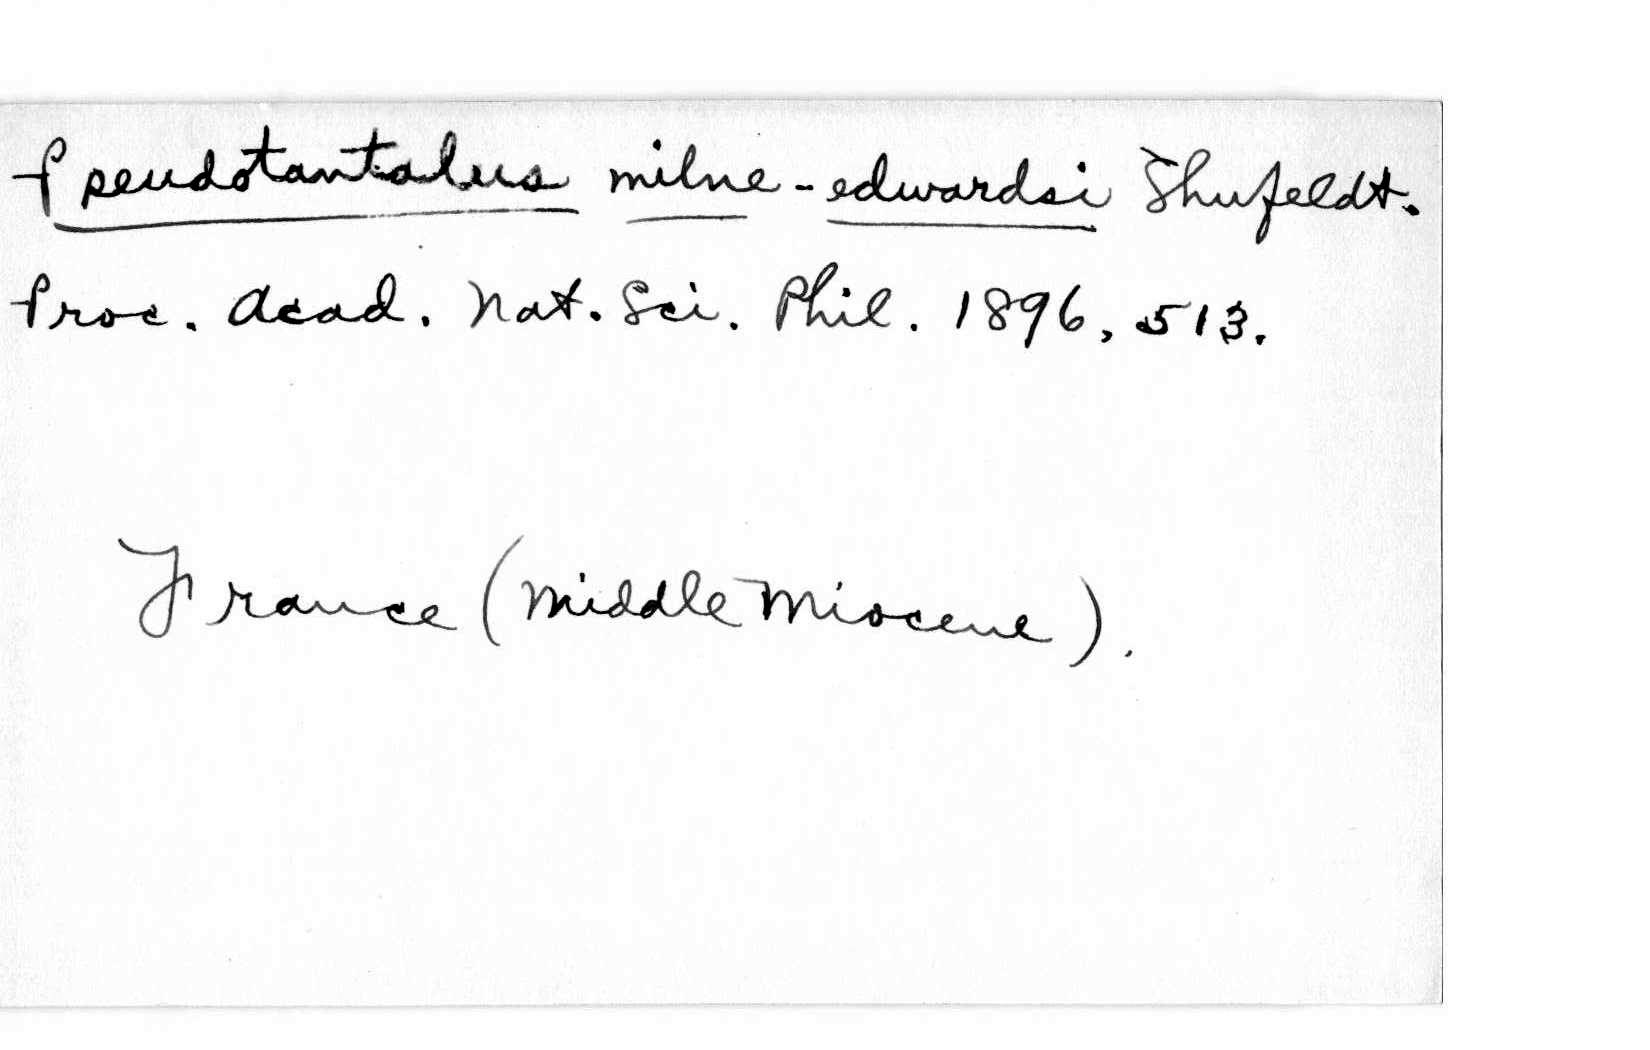 Pseudotantalus milne-edwardsi Shufeldt.
Proc. Acad. Nat. Sci. Phil. 1896, 513.
France (Middle Miocene).